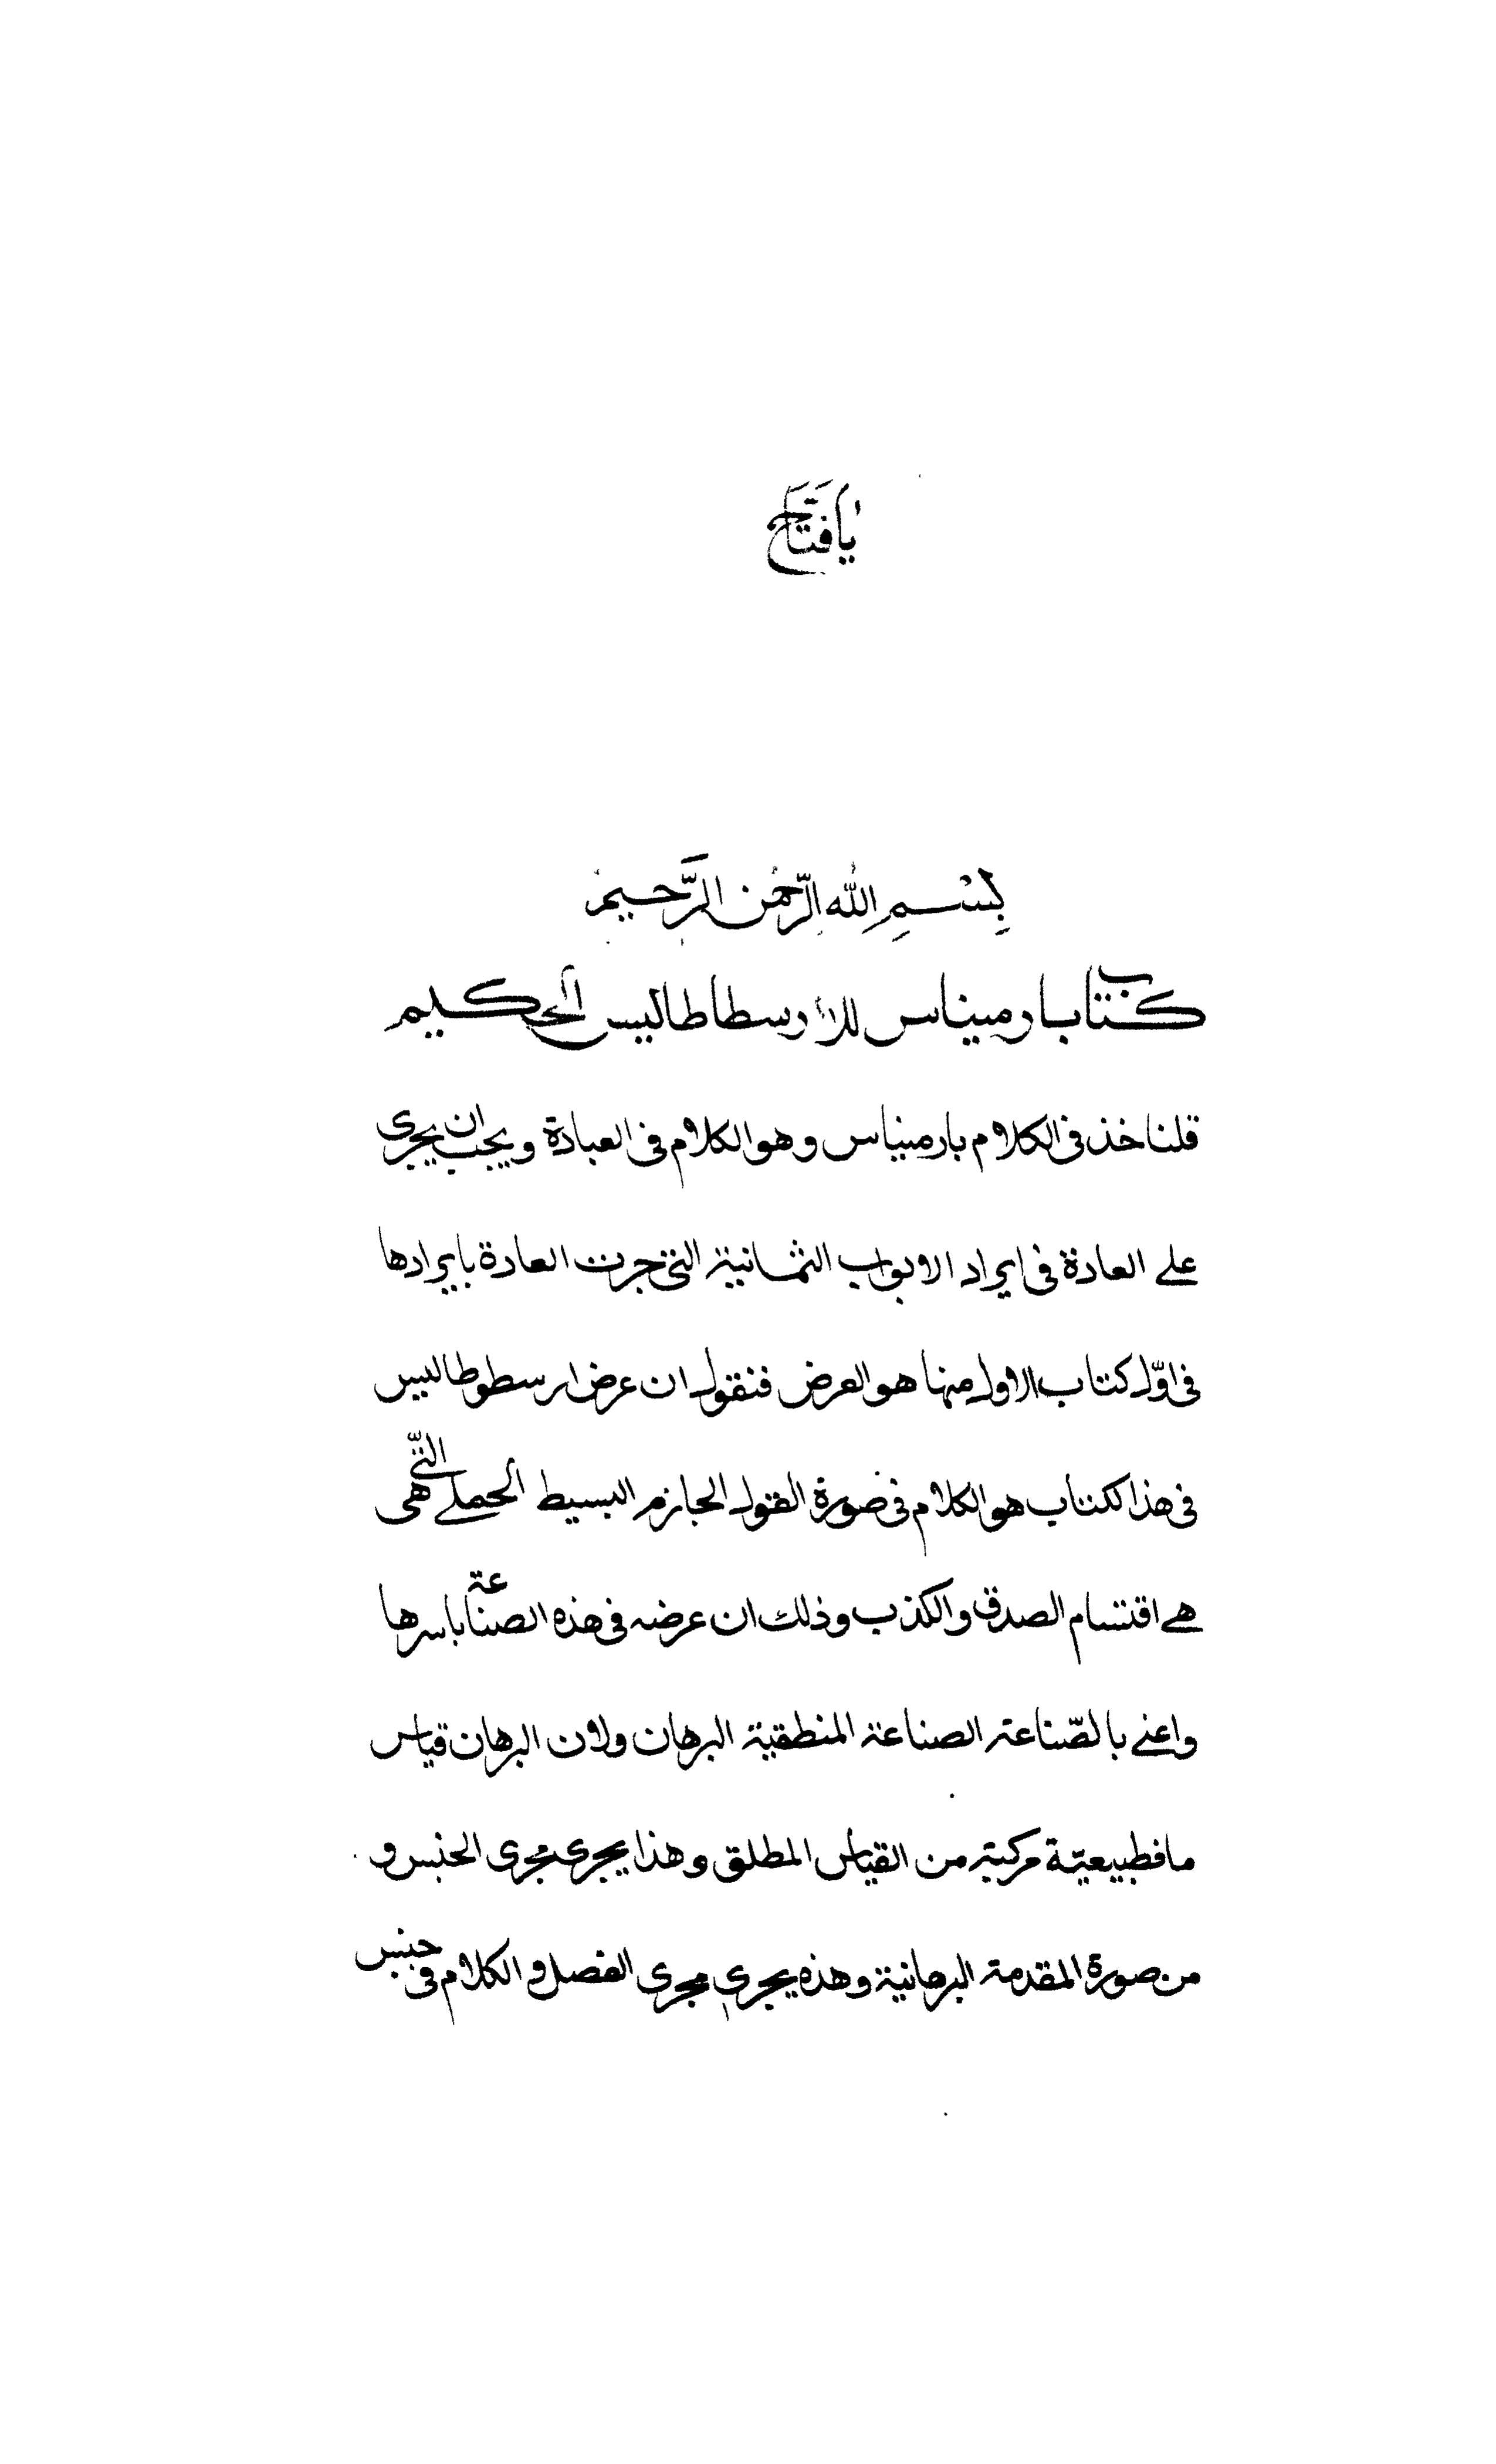 يا فَتَّاح
بِسْمِ اللهِ الرَّحْمٰنِ الرَّحيم
كتاب بارميناس للارسطاطاليس الحكيم
قلناخذ فى الكلام بارميناس وهو الكلام فى العبادة ويجب ان يجرى
على العادة فى ايراد الابواب الثمانية التى جرت العادة بايرادها
فى اوّل كتاب الاول منها هو العرض فنقول ان عرض ارسطوطاليس
فى هذا لكتاب هو الكلام فى صورة القول الجازم البسيط الحملى التّى هى
هى اقتسام الصدق والكذب وذلك ان عرضه فى هذه الصناعة باسرها
واعنى بالصّناعة الصناعة المنطقية البرهان ولان البرهان قياس
ما فطبيعيّة مركبة من القياس المطلق وهذا يجرى مجرى الجنس و
من صورة المقدمة البرهانية وهذه يجرى مجرى الفصل و الكلام فى جنس